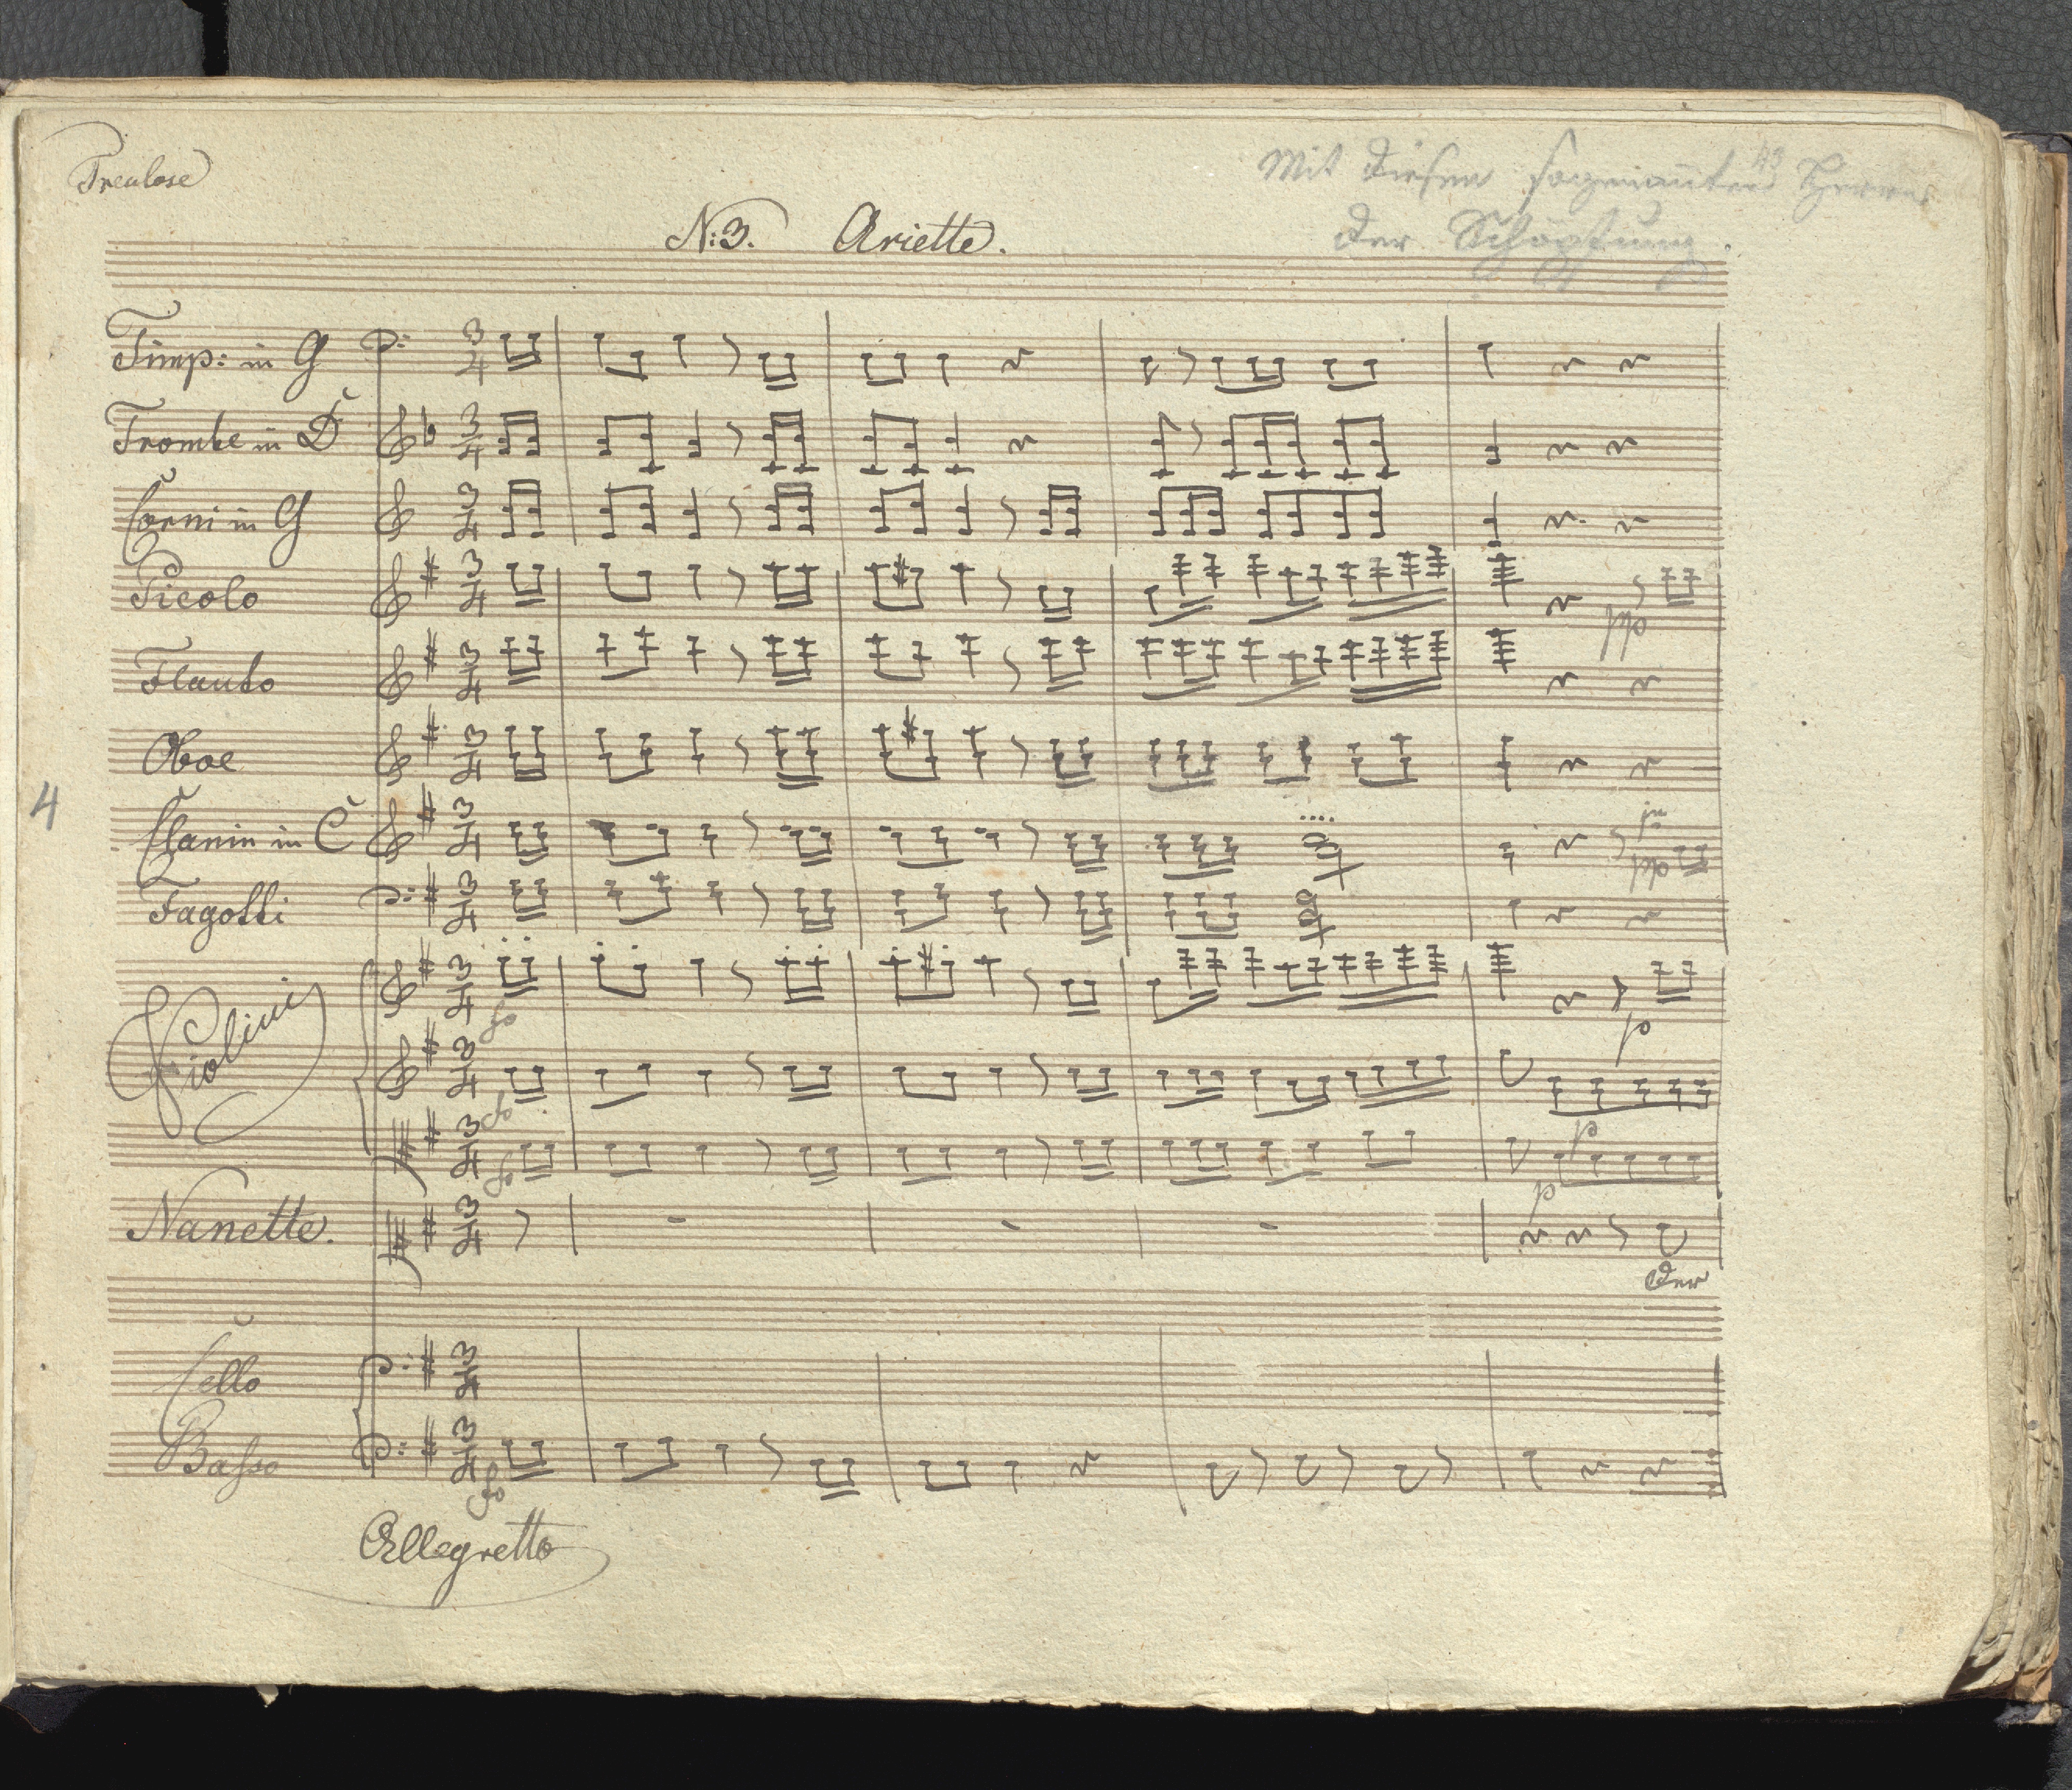 Treulose
43
Mit diesen sogenannten Herrn
der Schöpfung.
N: 3. Ariette.
Timp: in G
Trombe in D
Corni in G
Picolo
ppo
Flauto
Oboe
4
Clarin in C
ppo
Fagotti
Violini
fo
p
fo
p
fo
p
Nanette.
Der
Cello
Basso
fo
Allegretto